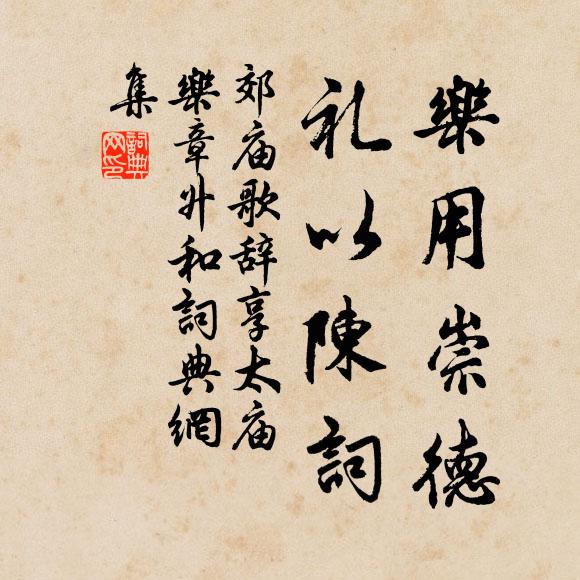 樂用崇德
礼以陳詞
郊庙歌辞享太庙
樂章升和詞典網
集
詞典網印